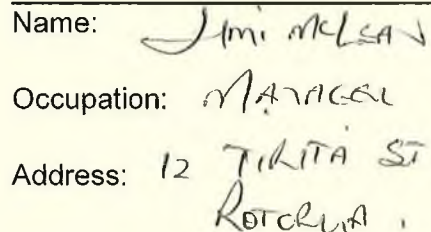 Name: Jimi McLean
Occupation: Manager
Address: 12 Tirita St
Rotorua.